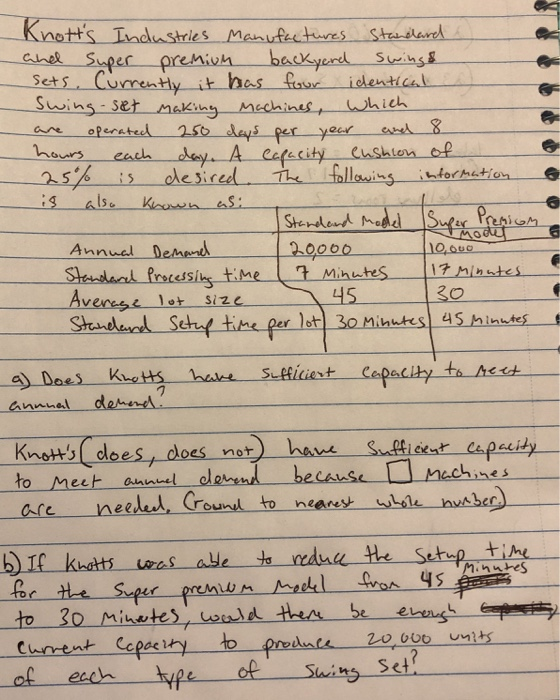 Knott's Industries Manufactures Standard
and Super premium backyard swings
sets. Currently it has four identical
Swing-set making machines, which
are operated 250 days per year and 8
hours each day. A capacity cushion of
25% is desired. The following information
is also known as:
Standard Model Super Premium Model
Annual Demand 20,000 10,000
Standard Processing time 7 Minutes 17 Minutes
Average lot size 45 30
Standard Setup time per lot 30 Minutes 45 Minutes
a) Does Knotts have sufficient capacity to meet
annual demand?
Knott's (does, does not) have Sufficient capacity
to meet annual demand because □ Machines
are needed. (round to nearest whole number.)
b) If Knotts was able to reduce the setup time
for the Super premium Model from 45 Minutes
to 30 Minutes, would there be enough
current capacity to produce 20,000 units
of each type of Swing Set?